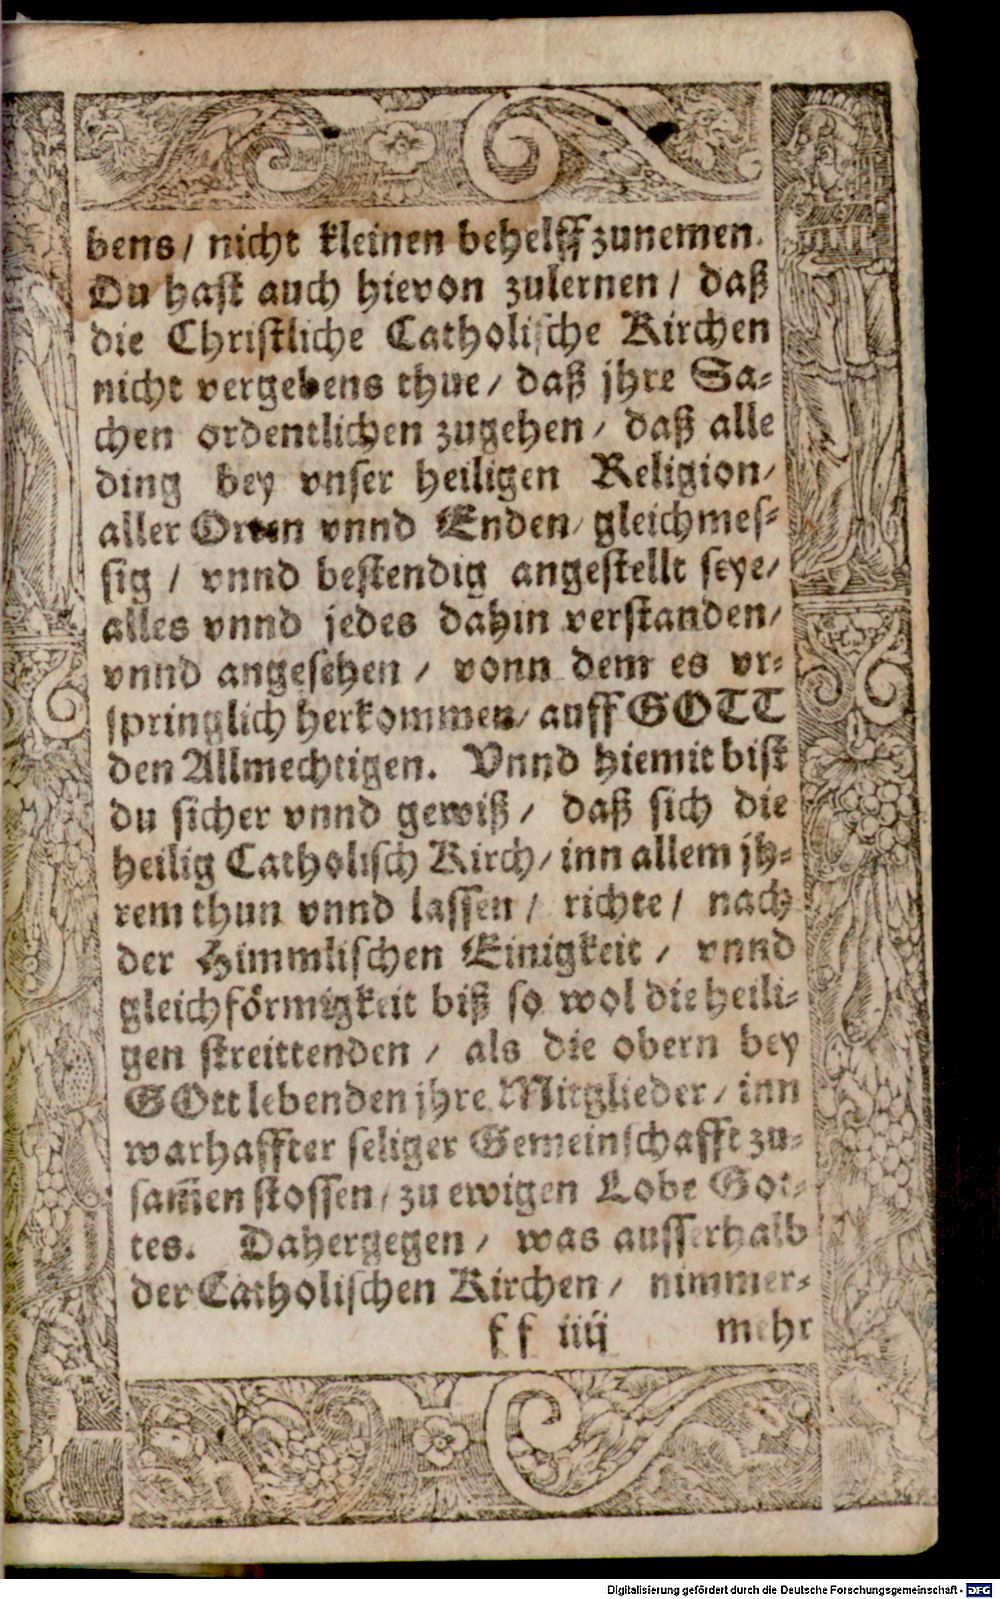 bens/ nicht kleinen behelff zunemen.
Du hast auch hievon zulernen / daß
die Christliche Catholische Kirchen
nicht vergebens thue/ daß jhre Sa-
chen ordentlichen zugehen/ daß alle
ding bey vnser heiligen Religion/
aller Orten vnnd Enden/ gleichmes-
sig / vnnd bestendig angestellt seye/
alles vnnd jedes dahin verstanden/
vnnd angesehen / vonn dem es vr-
springlich herkommen/ auff GOTT
den Allmechtigen. Vnnd hiemit bist
du sicher vnnd gewiß / daß sich die
heilig Catholisch Kirch/ inn allem jh-
rem thun vnnd lassen / richte / nach
der Himmlischen Einigkeit / vnnd
gleichförmigkeit biß so wol die heili-
gen streittenden / als die obern bey
GOtt lebenden jhre Mitglieder/ inn
warhaffter seliger Gemeinschafft zu-
sam̃en stossen/ zu ewigen Lobe Got-
tes. Dahergegen / was ausserhalb
der Catholischen Kirchen / nimmer-
ff iiij mehr
Digitalisierung gefördert durch die Deutsche Forschungsgemeinschaft - DFG